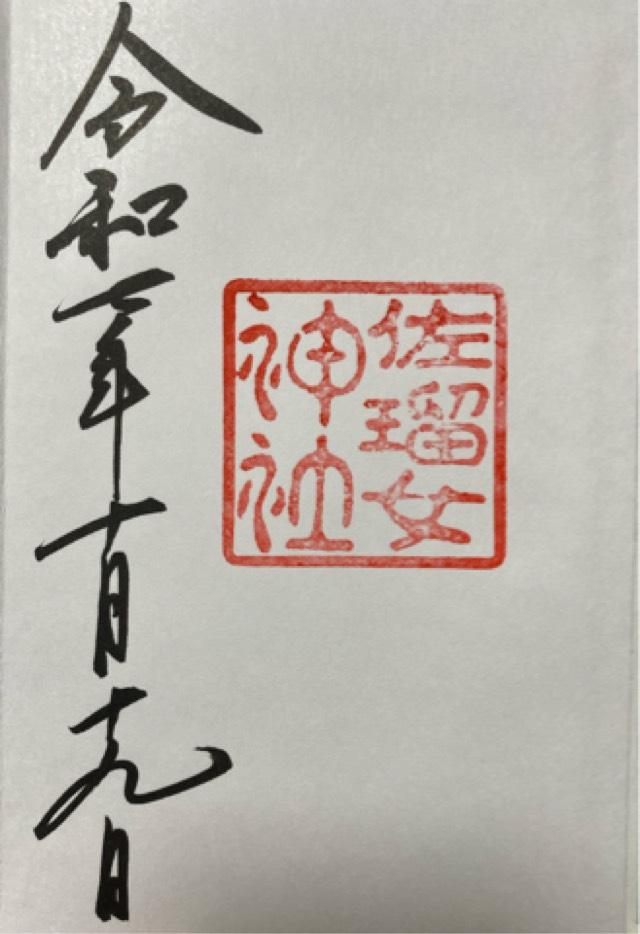 佐瑠女
神社
令和七年十月十九日